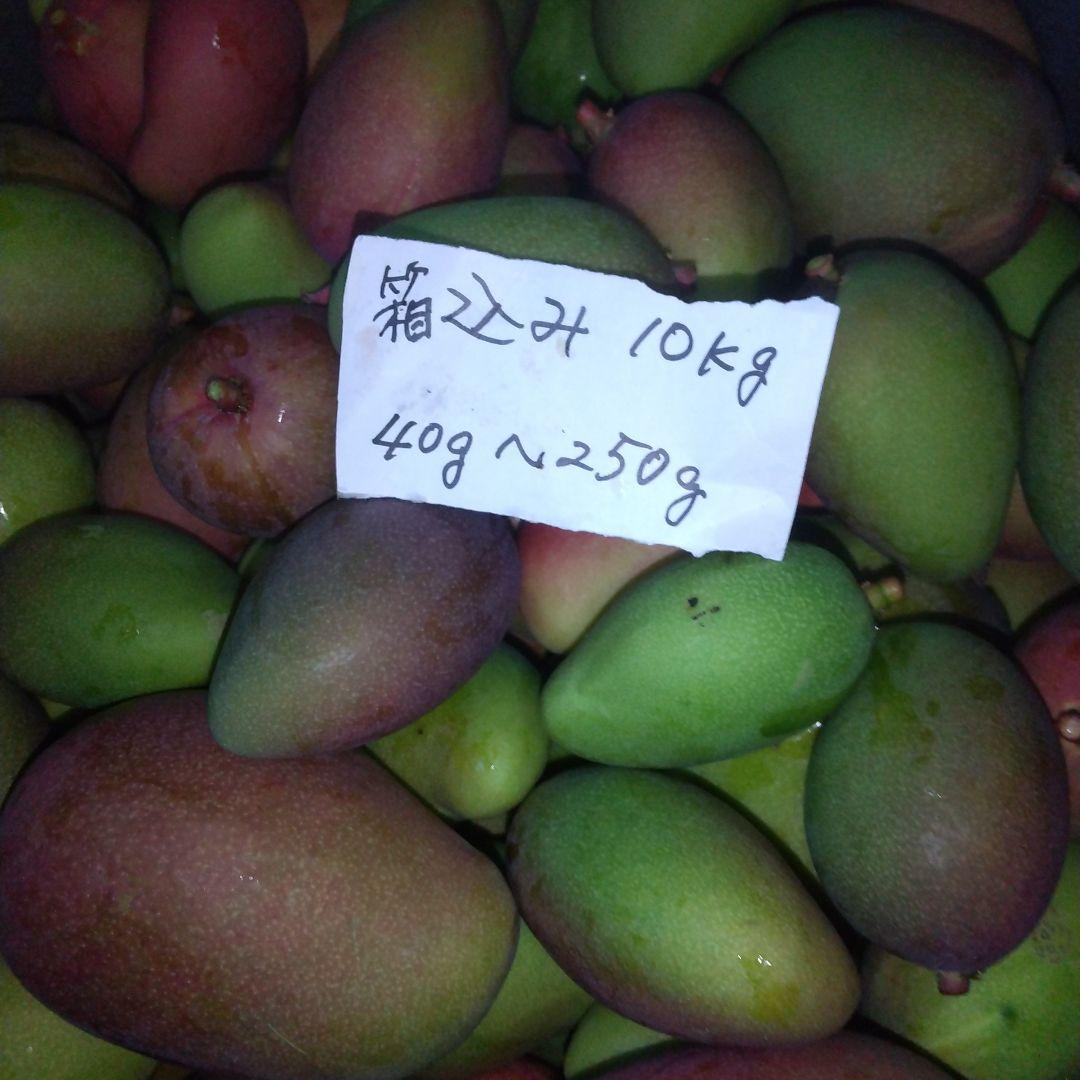 箱込み 10kg
40g~250g